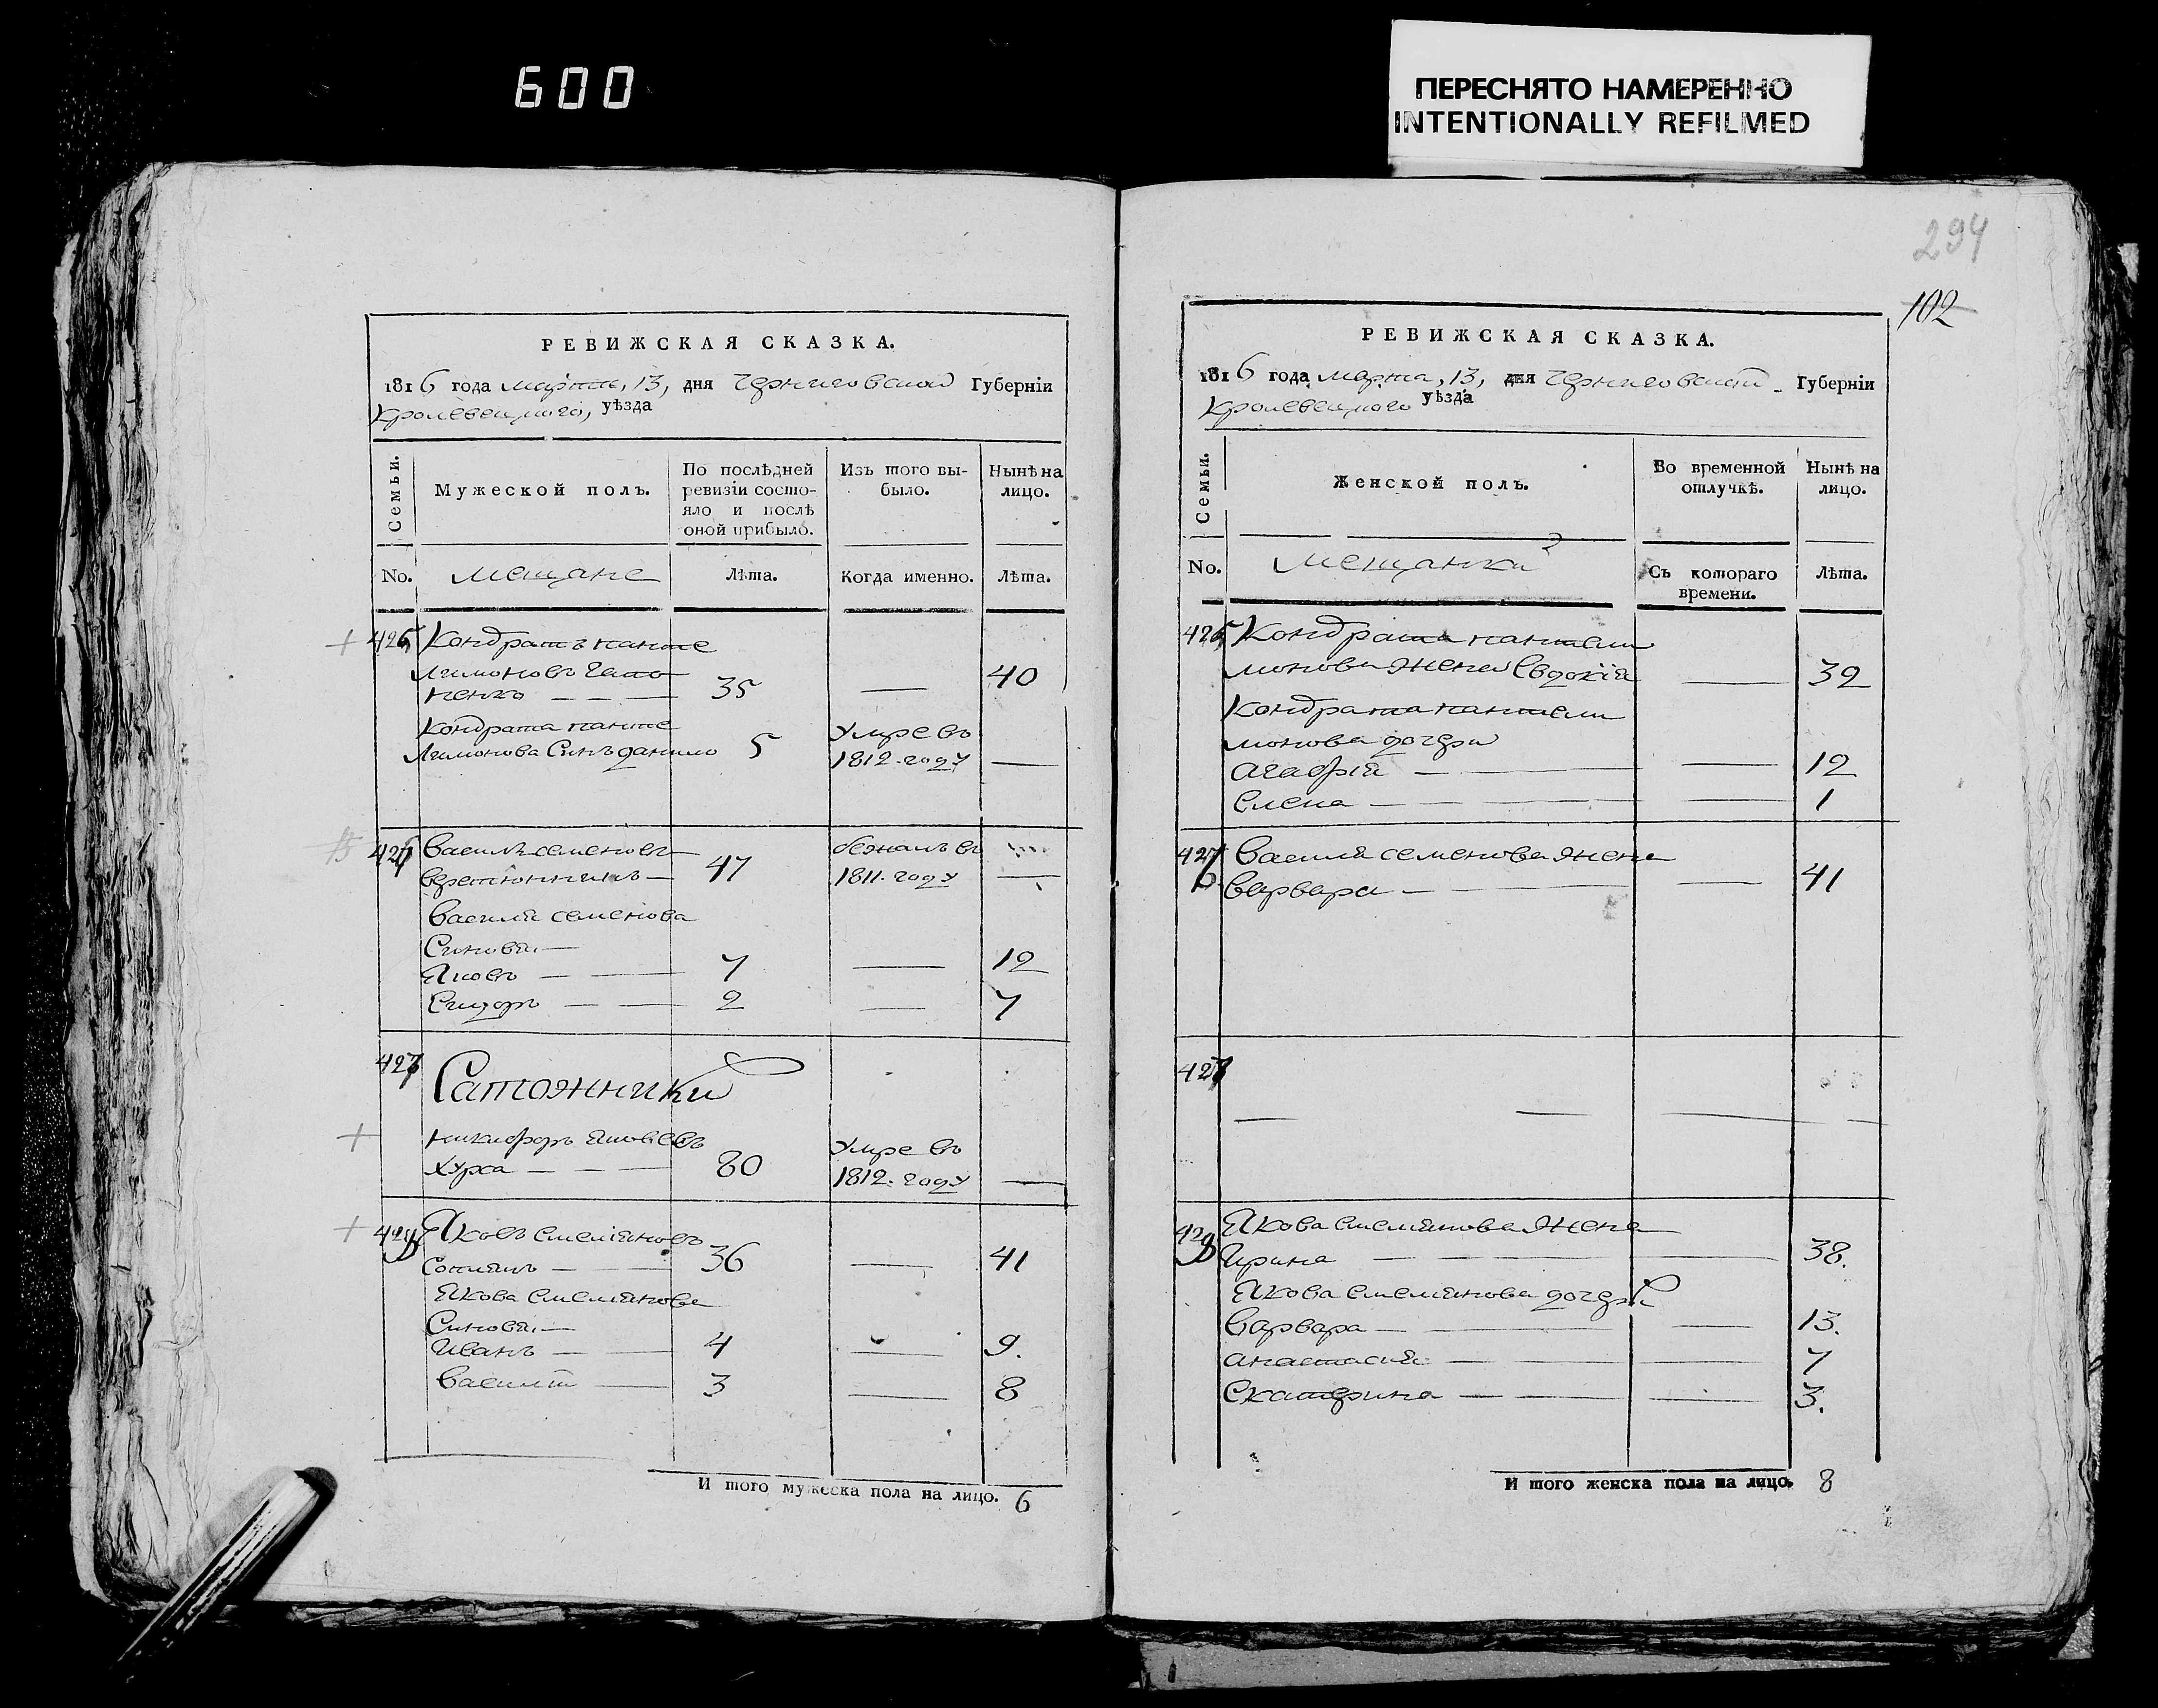 600
ПЕРЕСНЯТО НАМЕРЕННО
INTENTIONALLY REFILMED
РЕВИЖСКАЯ СКАЗКА.
1816 года марта, 13, дня Черниговской Губерніи
Кролевецкого, уѣзда
Семьи.
Мужеской полъ.
По послѣдней
ревизіи состо-
яло и послѣ
оной прибыло.
Изъ того вы-
было.
Нынѣ на
лицо.
No.
мещане
Лѣта.
Когда именно.
Лѣта.
Кондратъ панте
лимоновъ
35 — 40
Кондрата панте
лимонова Синъ данило 5
Умре въ
1812. году —
Василь семеновъ
47
бежалъ въ
1811. году —
Василя семенова
Синовя —
Яковъ — — 7 — 12
Сидоръ — — 2 — 7
Сапожники
никифоръ Яковлевъ
Хурса — — — 80
Умре въ
1812. году —
Яковъ Емеляновъ
36 — 41
Якова Емелянова
Синовя —
Иванъ — — 4 — 9.
Василй — 3 — 8
И того мужеска пола на лицо. 6
294
102
РЕВИЖСКАЯ СКАЗКА.
1816 года марта, 13, дня Черниговской Губерніи
Кролевецкого уѣзда
Семьи.
Женской полъ.
Во временной
отлучкѣ.
Нынѣ на
лицо.
No.
мещанки
Съ котораго
времени.
Лѣта.
Кондрата пантели
монова жена Евдокія — 32
Кондрата пантели
монова дочери
Агафія — — — 12
Елена — — — 1
Василя семенова жена
Варвара — — — 41
— — — —
Якова емелянова жена
Ирина — — 38.
Якова емелянова дочери
Варвара — — — 13.
Анастасия — — — 7
Екатерина — — — 3.
И того женска пола на лицо. 8